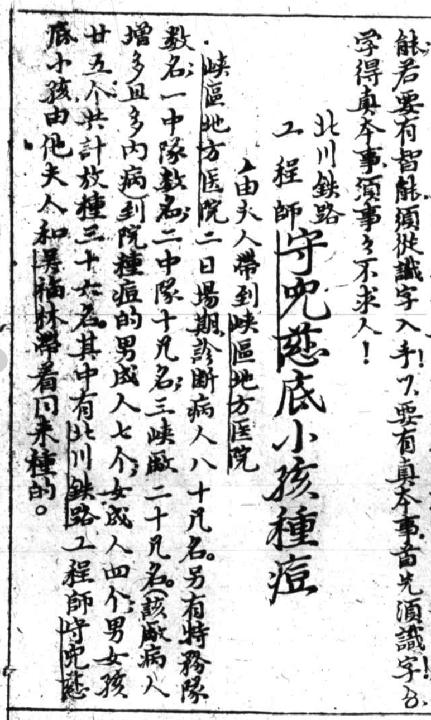 能若要有智能須從識字入手！7.要有真本事首先須識字！8.
学得真本事須事々不求人！
北川鉄路
工程師
守兜慈底小孩種痘
由夫人帶到峽區地方医院
峽區地方医院二日場期診断病人八十几名。另有特務隊
数名；一中隊数名；二中隊十几名；三峽廠二十几名。(該廠病人
增多且多內病)到院種痘的男成人七个；女成人四个；男女孩
廿五个；共計放種三十六名。其中有北川鉄路工程師守兜慈
底小孩由他夫人和吳福林帶着同来種的。